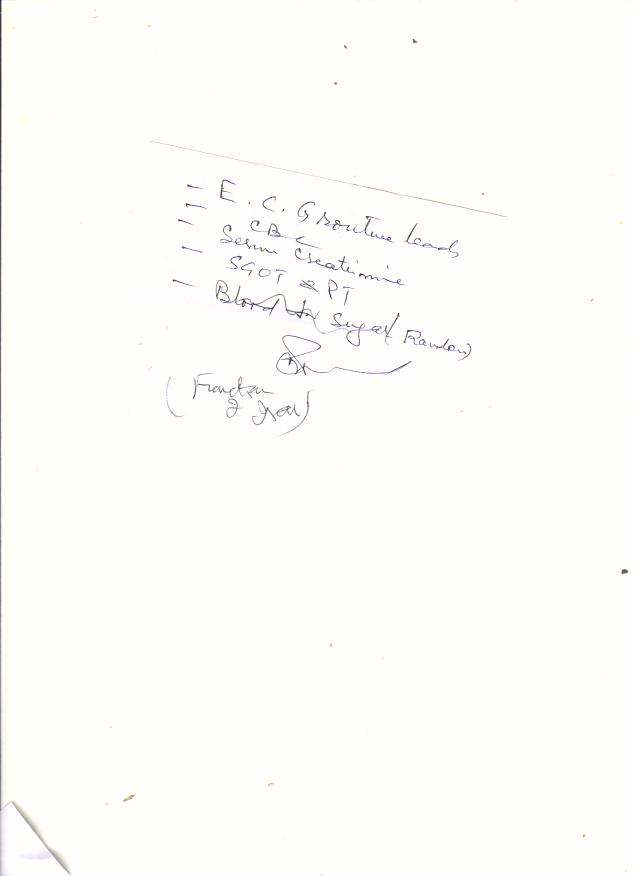 - E. C. G routine leads
- CBC
- Serum Creatinine
- SGOT & PT
- Blood for Sugar (Random)